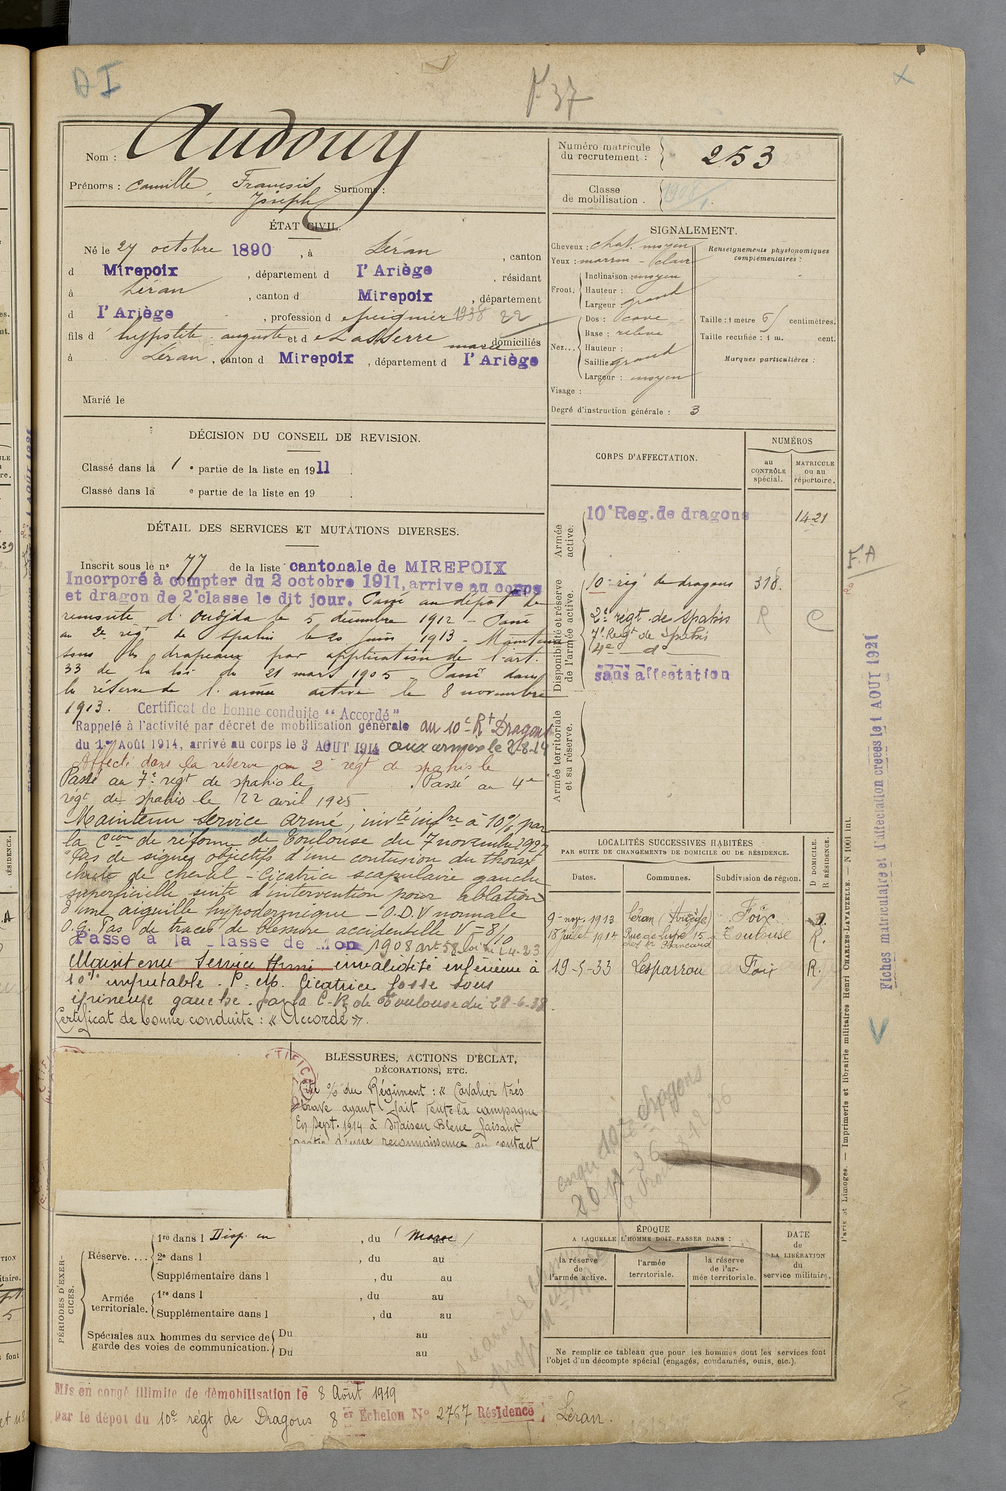 D I
P 37
X
Nom : Audouy
Prénoms : Camille Francois Joseph Surnoms :
Numéro matricule du recrutement : 253
Classe de mobilisation . 1908/1
ÉTAT CIVIL.
Né le 27 octobre 1890 , à Léran , canton
d Mirepoix , département d l'Ariège , résidant
à Léran , canton d Mirepoix , département
d l'Ariège , profession d 1938 22
fils d' hyppolite auguste et d e Lasserre marie domiciliés
à Léran , canton d Mirepoix , département d l'Ariège
Marié le
SIGNALEMENT.
Cheveux : chat. moyen
Yeux : marron - clair
Front. Inclinaison moyen
Hauteur :
Largeur grand
Nez... Dos : cave
Base : relevé
Hauteur :
Saillie grand
Largeur : moyen
Visage :
Degré d'instruction générale : 3
Renseignements physionomiques complémentaires :
Taille : 1 mètre 61 centimètres.
Taille rectifiée : 1 m. cent.
Marques particulières :
DÉCISION DU CONSEIL DE REVISION.
Classé dans la 1 e partie de la liste en 1911 .
Classé dans la e partie de la liste en 19 .
DÉTAIL DES SERVICES ET MUTATIONS DIVERSES.
Inscrit sous le n° 77 de la liste cantonale de MIREPOIX
Incorporé à compter du 2 octobre 1911, arrivé au corps
et dragon de 2e classe le dit jour. Passé au dépôt de
remonte d' Oudjda le 5 décembre 1912 - Passé
au 2e régt de spahis le 20 juin 1913 - Maintenu
sous les drapeaux par application de l'art.
33 de la loi du 21 mars 1905 Passé dans
la réserve de l'armée active le 8 novembre
1913. Certificat de bonne conduite "Accordé"
Rappelé à l'activité par décret de mobilisation générale au 10e Rt Dragons
du 1er Août 1914, arrivé au corps le 3 AOUT 1914 aux armées le 2-8-14
Affecté dans la réserve au 2e régt de spahis le
Passé au 7e régt de spahis le . Passé au 4e
régt de spahis le 22 avril 1925
Maintenu service armé, invté infre à 10% par
la Cion de réforme de Toulouse du 7 novembre 192
"Pas de signes objectifs d'une contusion du thorax
chute de cheval - Cicatrice scapulaire gauche
superficielle suite d'intervention pour ablation
d'une aiguille hypodermique - O.D.V normale
O.G. Pas de traces de blessure accidentelle V = 8/10
Passé à la classe de Mon 1908 art 58 loi du 1.4.23
Maintenu Service Armé invalidité inférieure à
10% imputable . P. M. Cicatrice fosse sous
épineuse gauche . par la C.R. de Toulouse du 28-6-38
Certificat de bonne conduite : « Accordé ».
CORPS D'AFFECTATION.
NUMÉROS
au CONTRÔLE spécial.
MATRICULE ou au répertoire.
Armée active.
10e Reg. de dragons 1421
Disponibilité et réserve de l'armée active.
10e régt de dragons 318.
2e régt de Spahis R C
7e Regt de Spahis
4e do
sans affectation
Armée territoriale et sa réserve.
LOCALITÉS SUCCESSIVES HABITÉES
PAR SUITE DE CHANGEMENTS DE DOMICILE OU DE RÉSIDENCE.
Dates. Communes. Subdivision de région. D DOMICILE. R RÉSIDENCE.
9 nov. 1913 Léran (Ariège) Foix D.
18 juillet 1914 Toulouse R.
19-5-33 Lesparrou Foix R.
BLESSURES, ACTIONS D'ÉCLAT, DÉCORATIONS, ETC.
Cité %du Régiment : « Cavalier très
brave ayant fait toute la campagne
En Sept. 1914 à faisant
partie d'une reconnaissance au contact
PÉRIODES D'EXERCICES.
Réserve.... 1re dans l Disp. en , du ( Maroc ) au
2e dans l , du au
Supplémentaire dans l , du au
Armée territoriale. 1re dans l , du au
Supplémentaire dans l , du au
Spéciales aux hommes du service de garde des voies de communication. Du au
Du au
ÉPOQUE
A LAQUELLE L'HOMME DOIT PASSER DANS :
la réserve de l'armée active.
l'armée territoriale.
la réserve de l'armée territoriale.
DATE de LA LIBÉRATION du service militaire.
Ne remplir ce tableau que pour les hommes dont les services font
l'objet d'un décompte spécial (engagés, condamnés, omis, etc.).
Mis en congé illimité de démobilisation le 8 Août 1919
par le dépôt du 10e régt de Dragons 8 er Echelon No 2767 Résidence Léran.
F.A
Fiches matriculaire et d'affectation créées le 1 AOUT 1921
Paris et Limoges. — Imprimerie et librairie militaires Henri CHARLES-LAVAUZELLE. — N 1001 int.